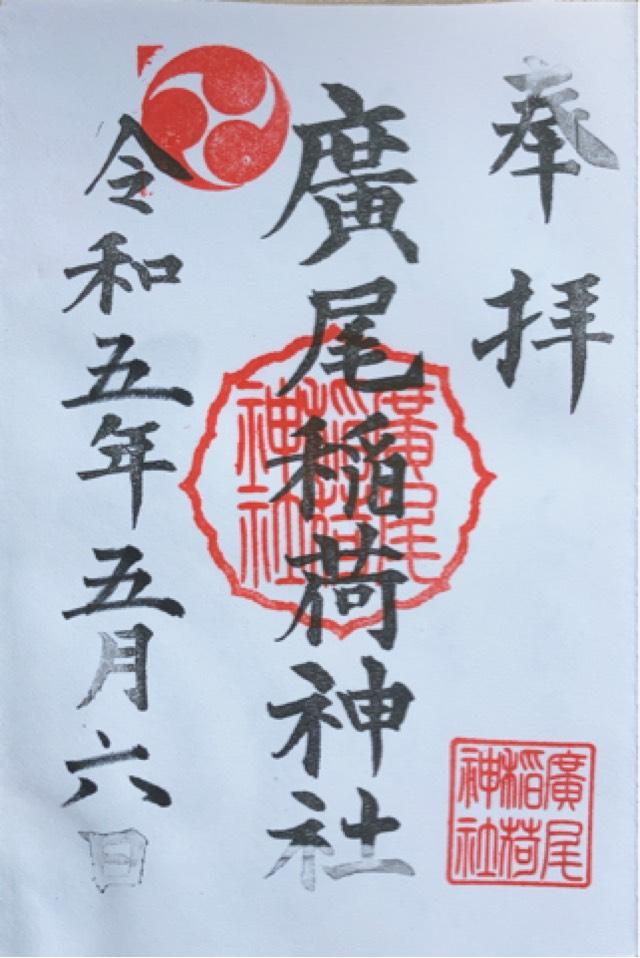 奉拝
廣尾稲荷神社
令和五年五月六日
廣尾
稲荷
神社
廣尾
稲荷
神社